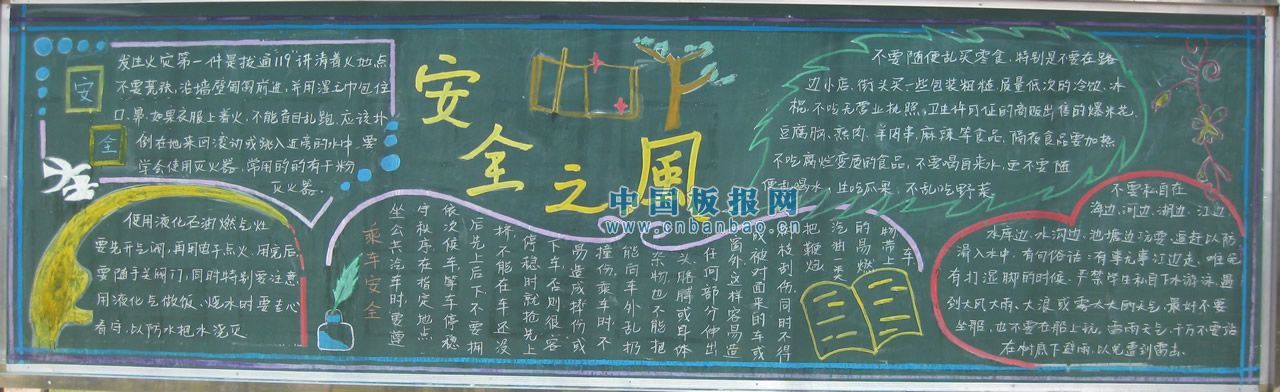 安
全
发生火灾第一件是拨通"119"讲清着火地点
不要慌张,沿墙壁匍匐前进,并用湿毛巾包住
口.鼻.如果衣服上着火,不能盲目乱跑.应该扑
倒在地来回滚动或跳入近旁的水中.要
学会使用灭火器.常用的的有干粉
灭火器.
安全之風
中国板报网
www.cnbanbao.cn
不要随便乱买零食,特别是不要在路
边小店,街头买一些包装粗糙,质量低次的冷饮.冰
棍.不吃无营业执照,卫生许可证的商贩出售的爆米花,
豆腐脑,熟肉,羊肉串,麻辣等食品,隔夜食品要加热
不吃腐烂变质的食品,不要喝自来水,更不要随
便乱喝水,生吃瓜果,不乱吃野菜.
使用液化石油燃气灶
要先开气阀,再用电子点火,用完后,
要随手关阀门,同时特别要注意,
用液化气做饭,烧水时要专心
看守,以防水把水浇灭
乘车安全
坐公共汽车时,要遵
守秩序,在指定地点
依次候车,等车停稳
后先上后下不要拥
挤,不能在车还没
停稳时就抢先上
下车,否则很容
易造成摔伤或
撞伤,乘车时,不
能向车外乱扔
杂物,也不能把
头,胳膊或身体
任何部分伸出
窗外,这样容易造
成被对面来的车或
树枝刮伤,同时不得
把鞭炮
汽油一类
的易燃
物带上
车
不要私自在
海边,河边,湖边,江边
水库边,水沟边,池塘边玩耍,追赶以防
滑入水中.有句俗话:有事无事江边走,难免
有打湿脚的时候.严禁学生私自下水游泳.遇
到大风大雨,大浪或雾太大的天气,最好不要
坐船,也不要在船上玩,雷雨天气,千万不要站
在树底下避雨,以免遭到雷击.